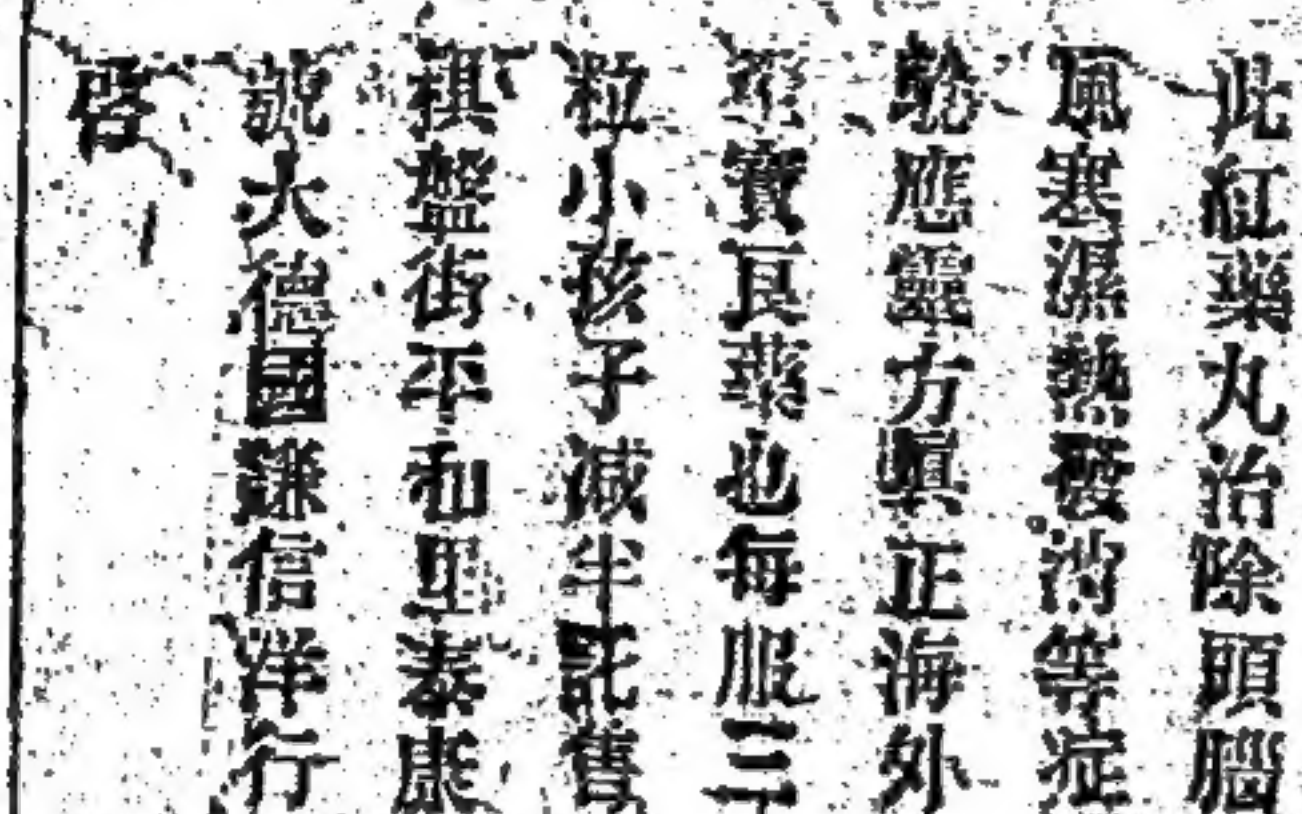 此紅藥丸治除頭腦
風寒濕熱發痧等症
驗應靈方眞正海外
至寶良藥也每服三
粒小孩子減半託售
棋盤街平和里泰康
號大德國謙信洋行
啓